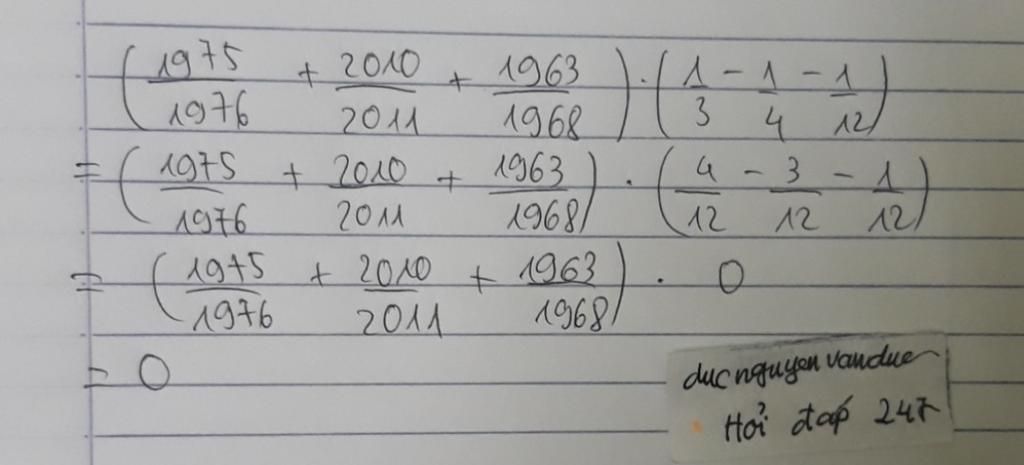 (1975/1976 + 2010/2011 + 1963/1968) · (1/3 - 1/4 - 1/12)
= (1975/1976 + 2010/2011 + 1963/1968) · (4/12 - 3/12 - 1/12)
= (1975/1976 + 2010/2011 + 1963/1968) · 0
= 0
ducnguyenvanduc
Hỏi đáp 247